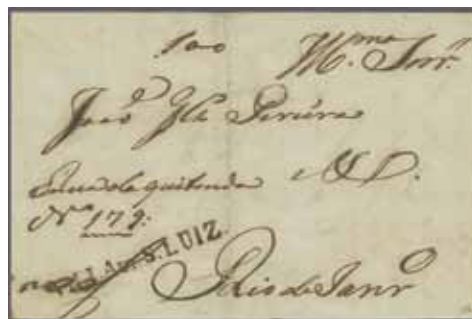 100 Illmo. Snr.
João Glz Pereira
Rua da quitanda
No. 179.
S. LUIZ.
Rio de Janro